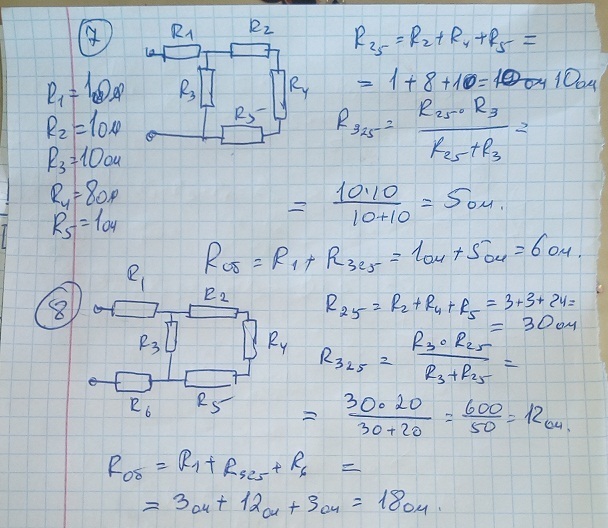 7
R1 R2
R3 R4
R5
R1=1ом
R2=1ом
R3=10ом
R4=8ом
R5=1ом
R25 = R2+R4+R5 =
= 1+8+1 = 10ом
R325 = R25·R3 / R25+R3 =
= 10·10 / 10+10 = 5ом.
Rоб = R1 + R325 = 1ом + 5ом = 6ом.
8
R1 R2
R3 R4
R6 R5
R25 = R2+R4+R5 = 3+3+24=
= 30ом
R325 = R3·R25 / R3+R25 =
= 30·20 / 30+20 = 600 / 50 = 12ом.
Rоб = R1+R325+R6 =
= 3ом + 12ом + 3ом = 18ом.